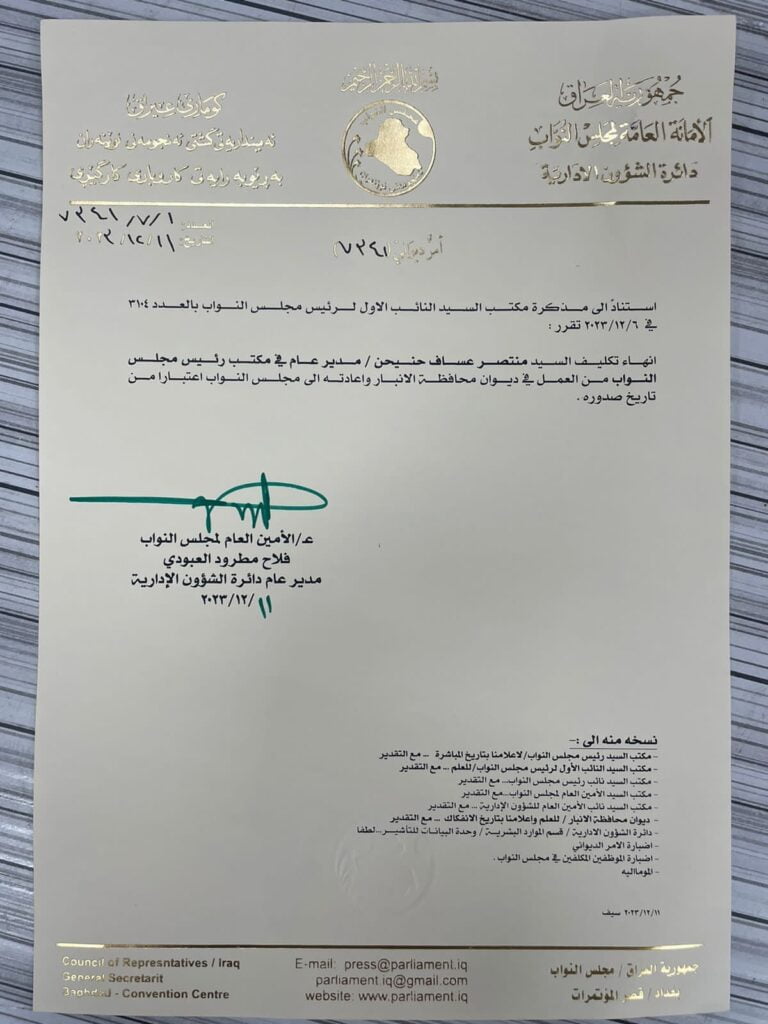 بسم الله الرحمن الرحيم
جمهورية العراق
الأمانة العامة لمجلس النواب
دائرة الشؤون الادارية
كۆماری عێراق
ئەمینداریەتی گشتی ئەنجومەنی نوێنەران
بەڕێوبەرایەتی كاروباری كارگێڕی
العدد: ٧٣٤١/٧/١
التاريخ: ٢٠٢٣/١٢/١١
أمر ديواني (٧٣٤١)
استناداً الى مذكرة مكتب السيد النائب الاول لرئيس مجلس النواب بالعدد ٣١٠٤
في ٢٠٢٣/١٢/٦ تقرر :
انهاء تكليف السيد منتصر عساف حنيحن / مدير عام في مكتب رئيس مجلس
النواب من العمل في ديوان محافظة الانبار واعادته الى مجلس النواب اعتبارا من
تاريخ صدوره .
عـ/الأمين العام لمجلس النواب
فلاح مطرود العبودي
مدير عام دائرة الشؤون الإدارية
٢٠٢٣/١٢/١١
نسخه منه الى :-
- مكتب السيد رئيس مجلس النواب/ لاعلامنا بتاريخ المباشرة ... مع التقدير
- مكتب السيد النائب الأول لرئيس مجلس النواب/للعلم ... مع التقدير
- مكتب السيد نائب رئيس مجلس النواب... مع التقدير
- مكتب السيد الأمين العام لمجلس النواب...مع التقدير
- مكتب السيد نائب الأمين العام للشؤون الإدارية ... مع التقدير
- ديوان محافظة الانبار / للعلم واعلامنا بتاريخ الانفكاك ... مع التقدير
- دائرة الشؤون الادارية / قسم الموارد البشرية / وحدة البيانات للتأشير...لطفا
- اضبارة الامر الديواني
- اضبارة الموظفين المكلفين في مجلس النواب .
- الموماليه
٢٠٢٣/١٢/١١ سيف
جمهورية العراق / مجلس النواب
بغداد / قصر المؤتمرات
E-mail: press@parliament.iq
parliament.iq@gmail.com
website: www.parliament.iq
Council of Represntatives / Iraq
General Secretarit
Baghdad - Convention Centre